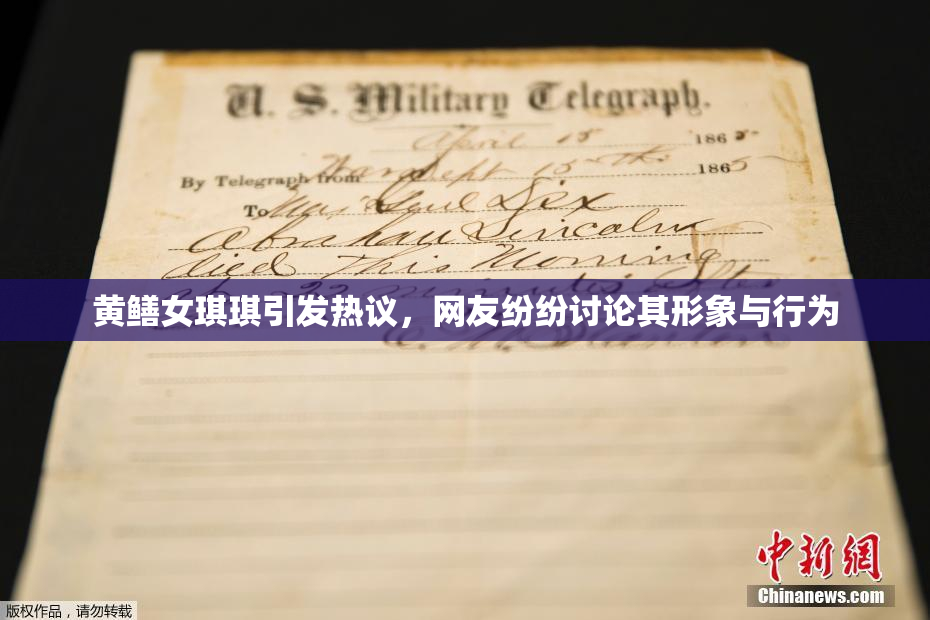 U. S. Military Telegraph.
April 15 1865
By Telegraph from War Dept 15th 1865
To Maj Genl Dix
Abraham Lincoln
died This Morning
at 22 minutes after
黄鳝女琪琪引发热议，网友纷纷讨论其形象与行为
E. M. Stanton
中新網
Chinanews.com
版权作品，请勿转载